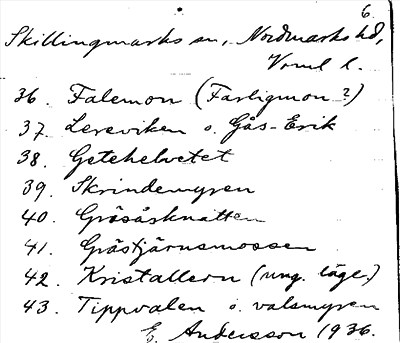 6.
Skillingmarks sn, Nordmarks hd,
Verml l.
36. Falemon (Farligmon?)
37. Lersviken o. Gås-Erik
38. Getehelvetet
39. Skrindemyren
40. Gråsåsknatten
41. Gråstjärnsmossen
42. Kristallern (ung. läge.)
43. Tippvalen o. valsmyren
E. Andersson 1936.